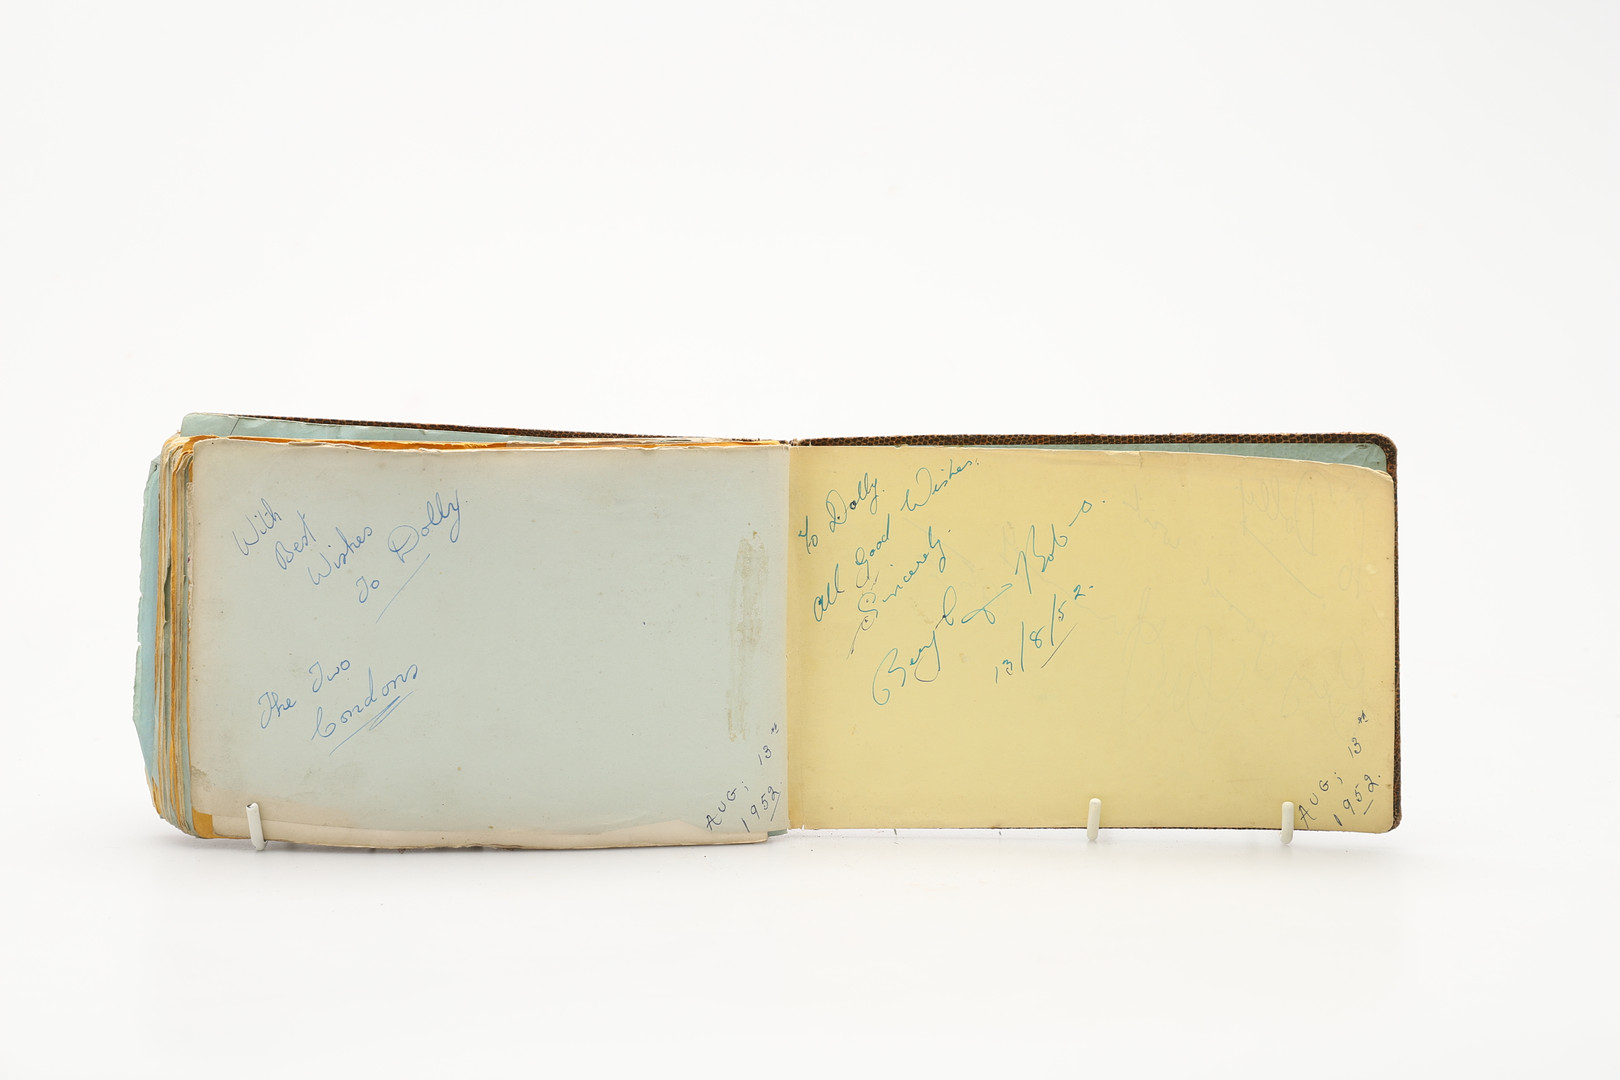 With
Best
Wishes
To Dolly
The Two
Condons
AUG; 13th
1952.
To Dolly.
All Good Wishes.
Sincerely.
Beryl & Bob
13/8/52.
AUG; 13th
1952.